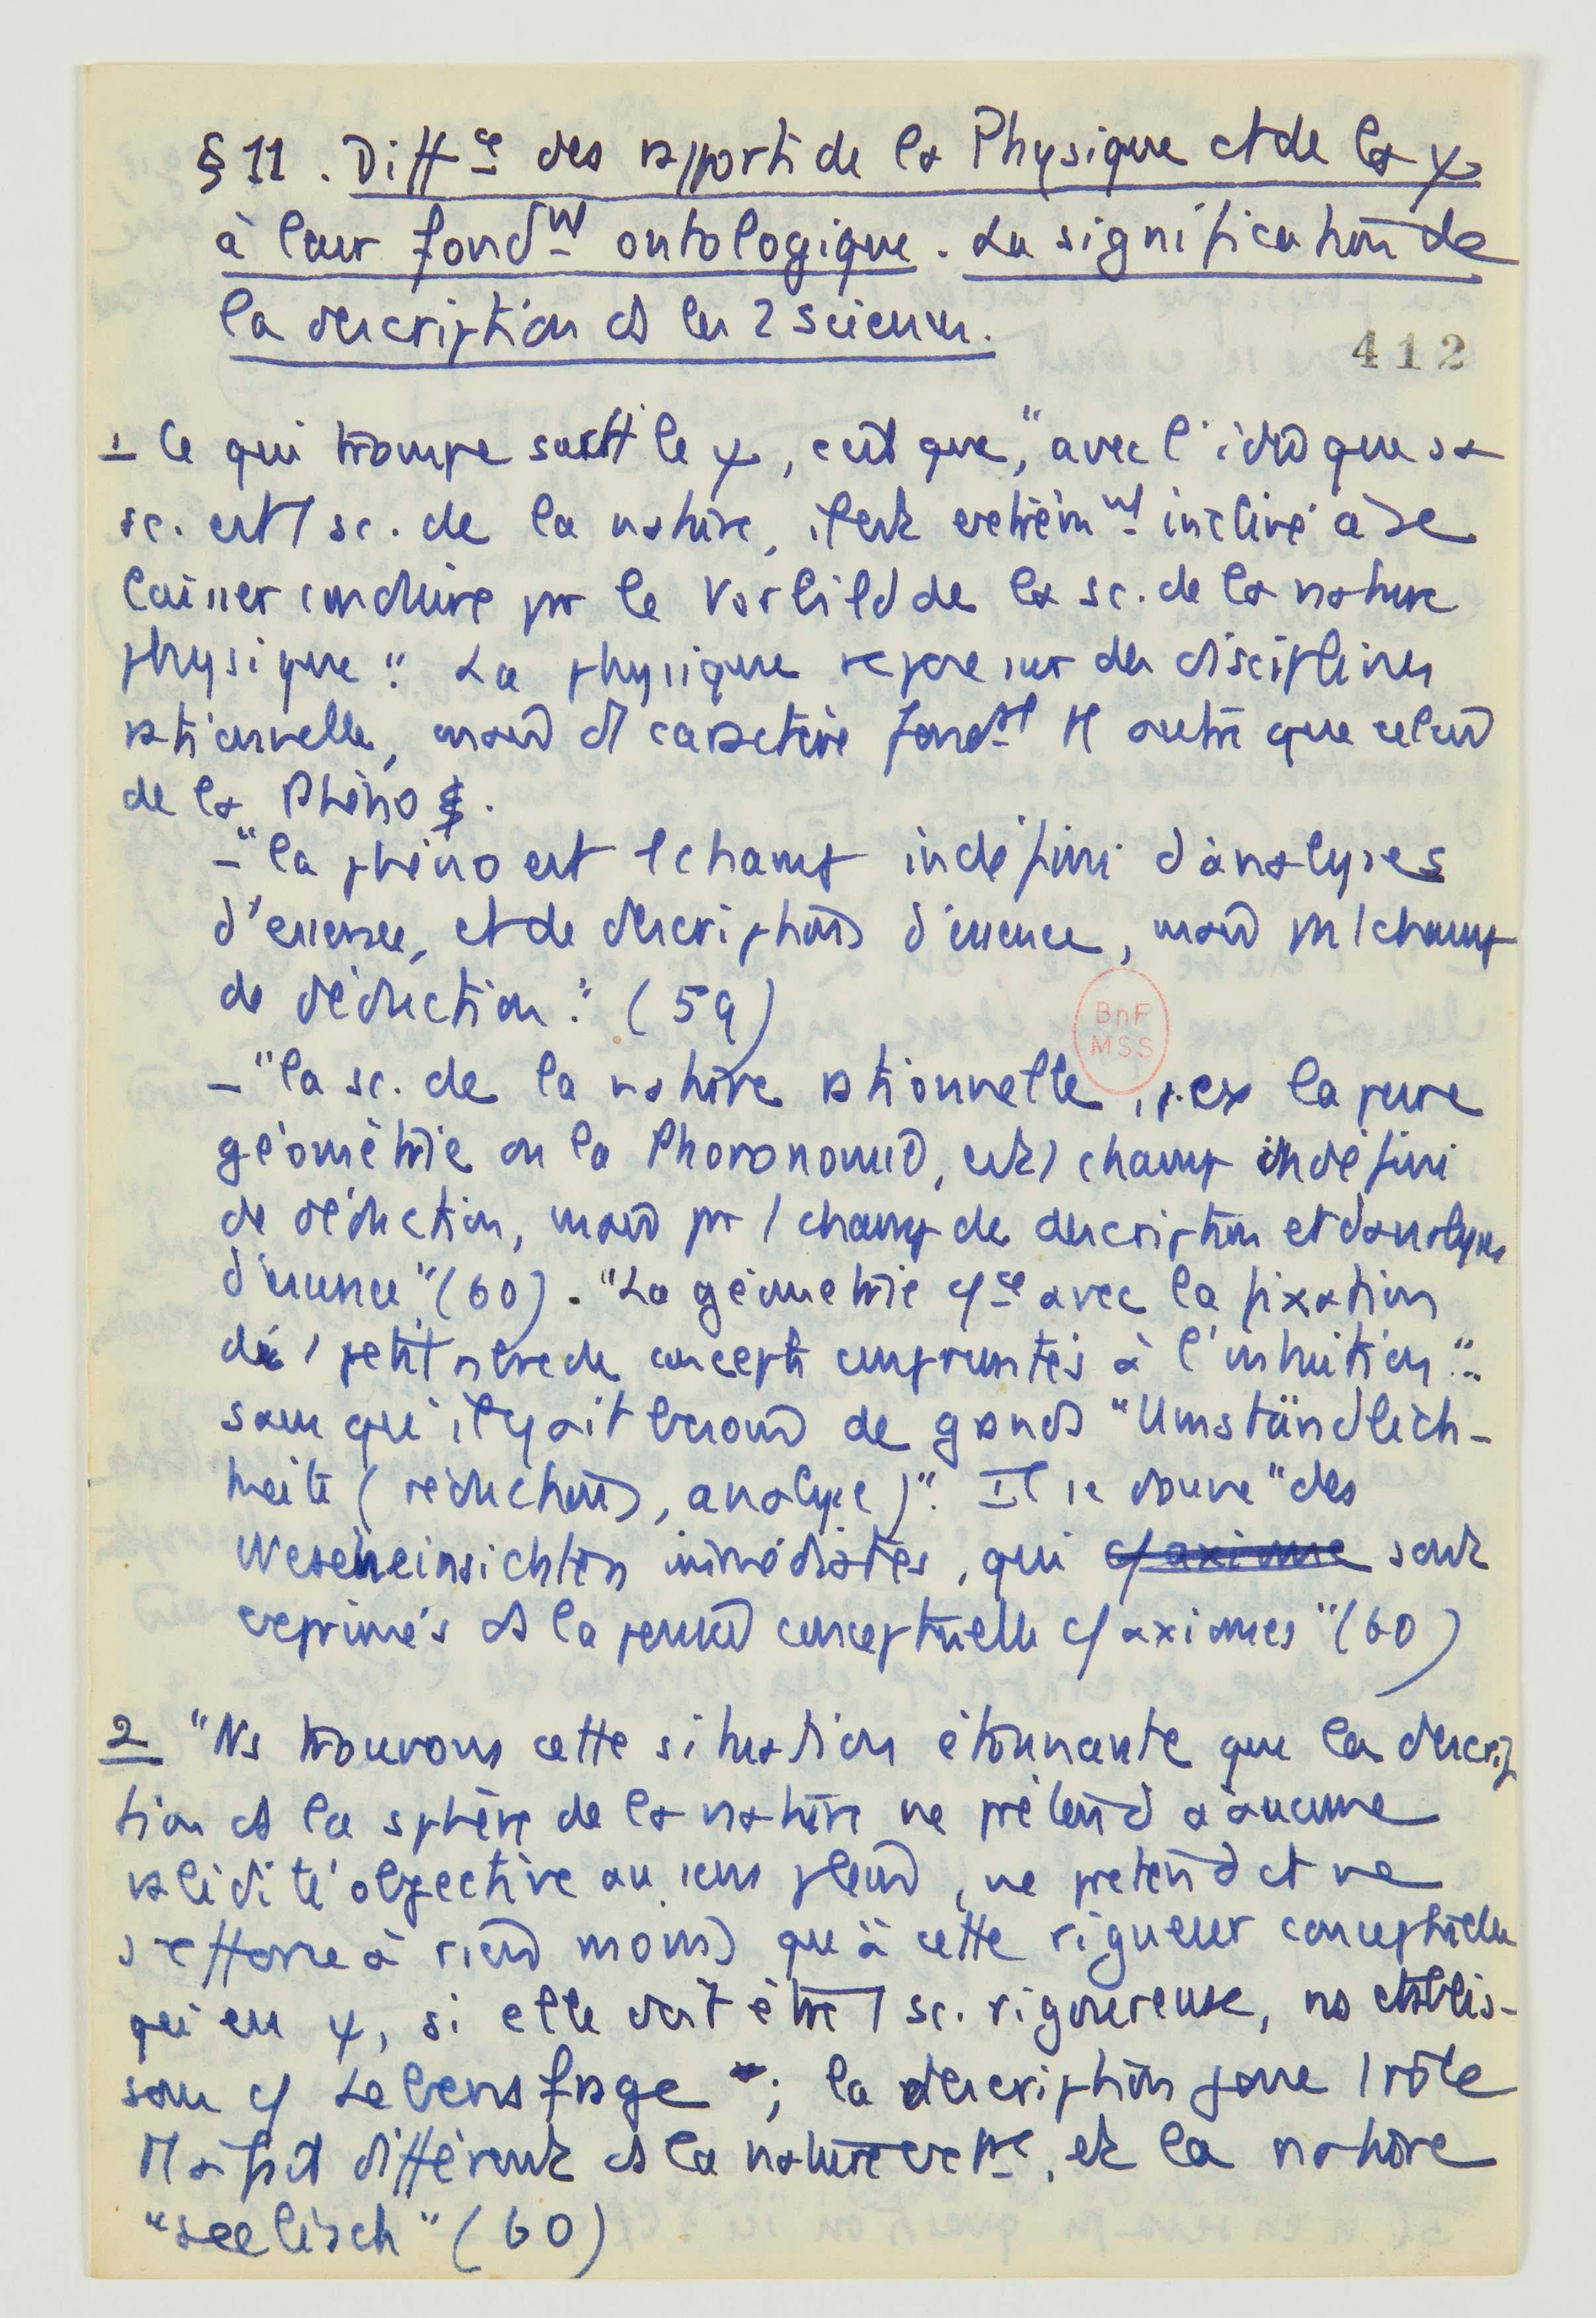 § 11. Diff<sup>ce</sup> des rapports de la Physique et de la ψ
à leur fond<sup>nt</sup> ontologique. La signification de
la description ds les 2 sciences.
412
1 Ce qui trompe surtt le ψ, c'est que, "avec l'idée que sa
sc. est 1 sc. de la nature, il est extrêm<sup>nt</sup> incliné à se
laisser conduire par le Vorbild de la sc. de la nature
physique". La physique repose sur des disciplines
rationnelles, mais d'1 caractère fond<sup>al</sup> tt autre que celui
de la Phéno
- "la phéno est 1 champ indéfini d'analyses
d'essence, et de descriptions d'essence, mais pas 1 champ
de déduction". (59)
BnF
MSS
- "la sc. de la nature rationnelle, p. ex la pure
géométrie ou la Phoronomie, est 1 champ indéfini
de déduction, mais pas 1 champ de description et d'analyses
d'essence" (60). "La géométrie c/<sup>ce</sup> avec la fixation
de 1 petit nbre de concepts empruntés à l'intuition"
sans qu'il y ait besoin de grands "Umständlich-
keite (réductions, analyse)". Il se trouve "des
Weseneinsichten immédiates, qui c/ axiome sont
exprimés ds la pensée conceptuelle c/ axiomes" (60)
2 "Ns trouvons cette situation étonnante que la descrip
tion ds la sphère de la nature ne prétend à aucune
validité objective au sens plein, ne prétend et ne
s'efforce à rien moins qu'à cette rigueur conceptuelle
qu'en ψ, si elle doit être 1 sc. rigoureuse, ns établis-
sons c/ Lebensfrage"; la description joue 1 rôle
tt à fait différent ds la nature ext<sup>re</sup>, et la nature
"seelisch" (60)